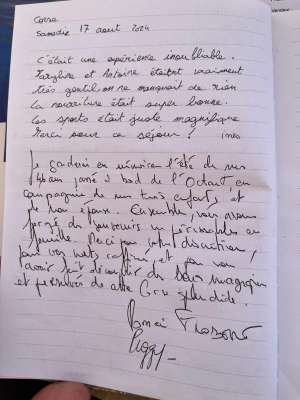 Corse
Samedie 17 août 2024
C'était une expérience inoubliable.
et Antoine étaient vraiment
très gentil on ne manquait de rien
la nourriture était super bonne.
Les sports était juste magnifique
Merci pour ce séjour ! Ines
Je garderai en mémoire l'été de mes
46 ans passé à bord de l'Octant, en
compagnie de mes trois enfants, et
de mon époux. Ensemble, nous avons
forgé des souvenirs impérissables en
famille. Merci pour votre discrétion,
pour vos mets raffinés, et pour nous
avoir fait découvrir des lieux magiques
et préservés de cette Corse splendide.
Merci
Peggy